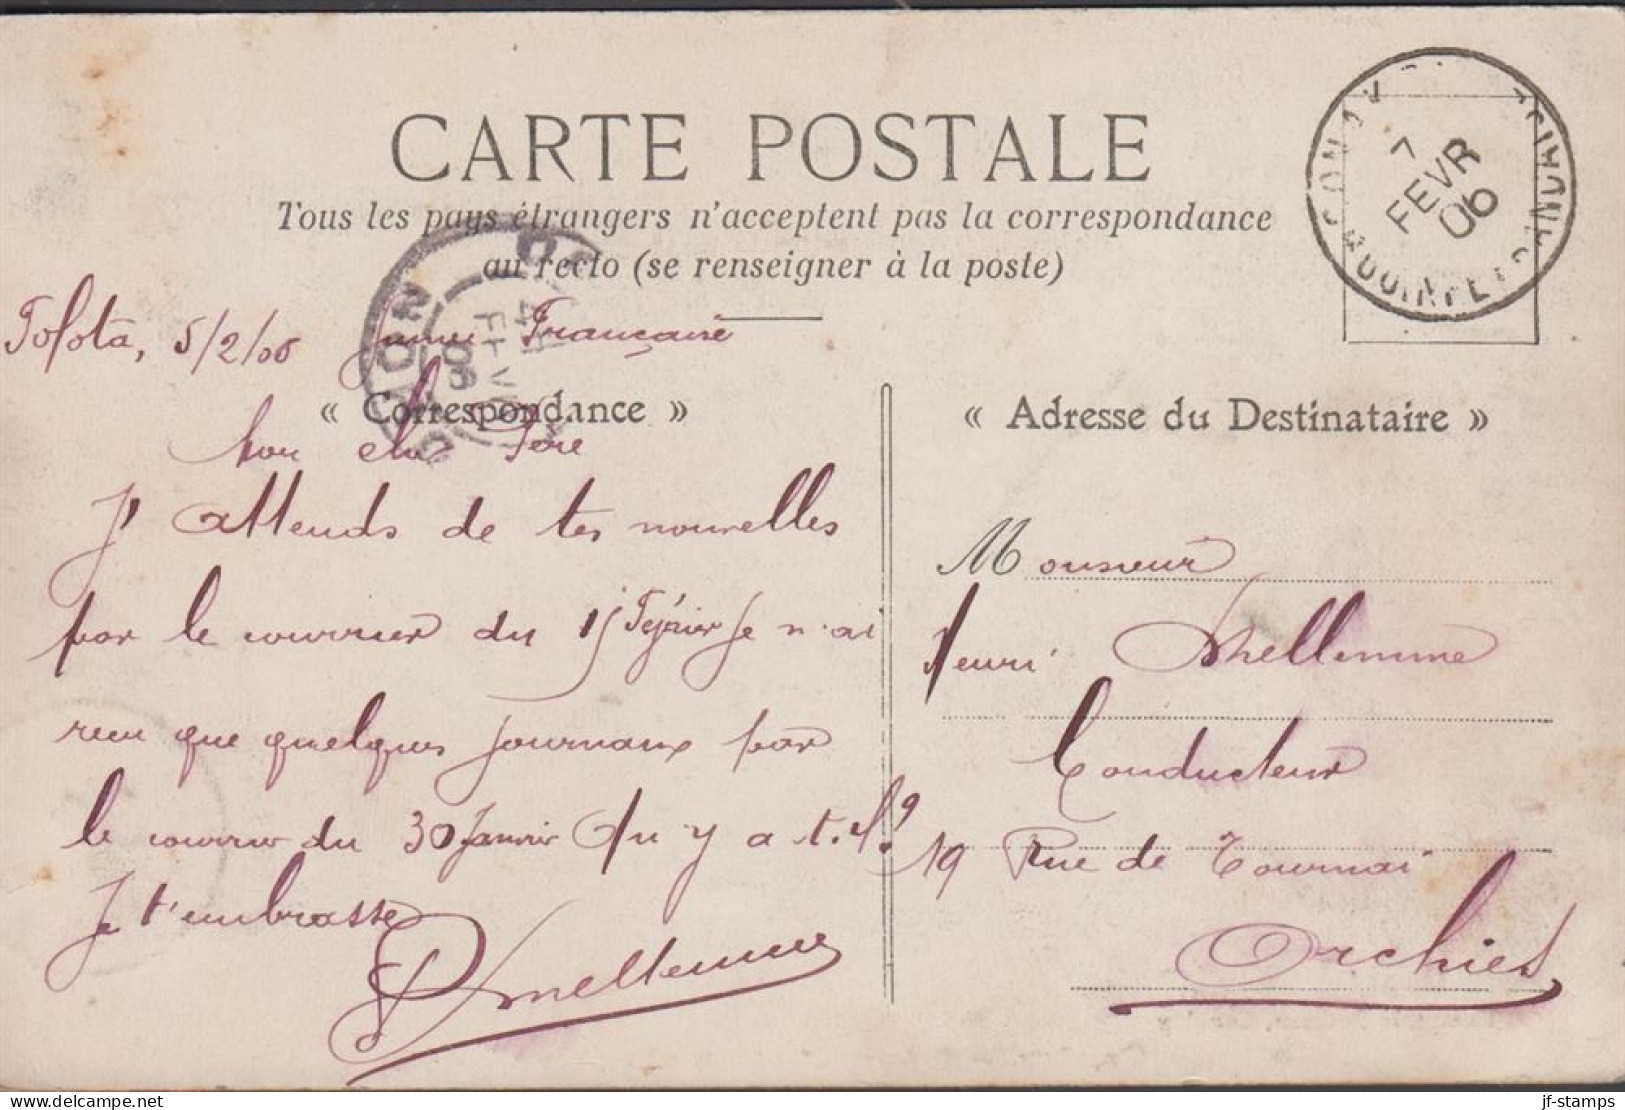 CARTE POSTALE
Tous les pays étrangers n'acceptent pas la correspondance
au recto (se renseigner à la poste)
7
FEVR
06
CONAKRY
Tolota, 5/2/06 Guinée Française
« Correspondance »
« Adresse du Destinataire »
Mon cher Père
J'attends de tes nouvelles
par le courrier du 15 Février Je n'ai
recu que quelques journaux par
le courrier du 30 Janvier Qu'y a t-il?
Je t'embrasse
Monsieur
Henri
Conducteur
19 Rue de Tournai
Orchies
jf-stamps